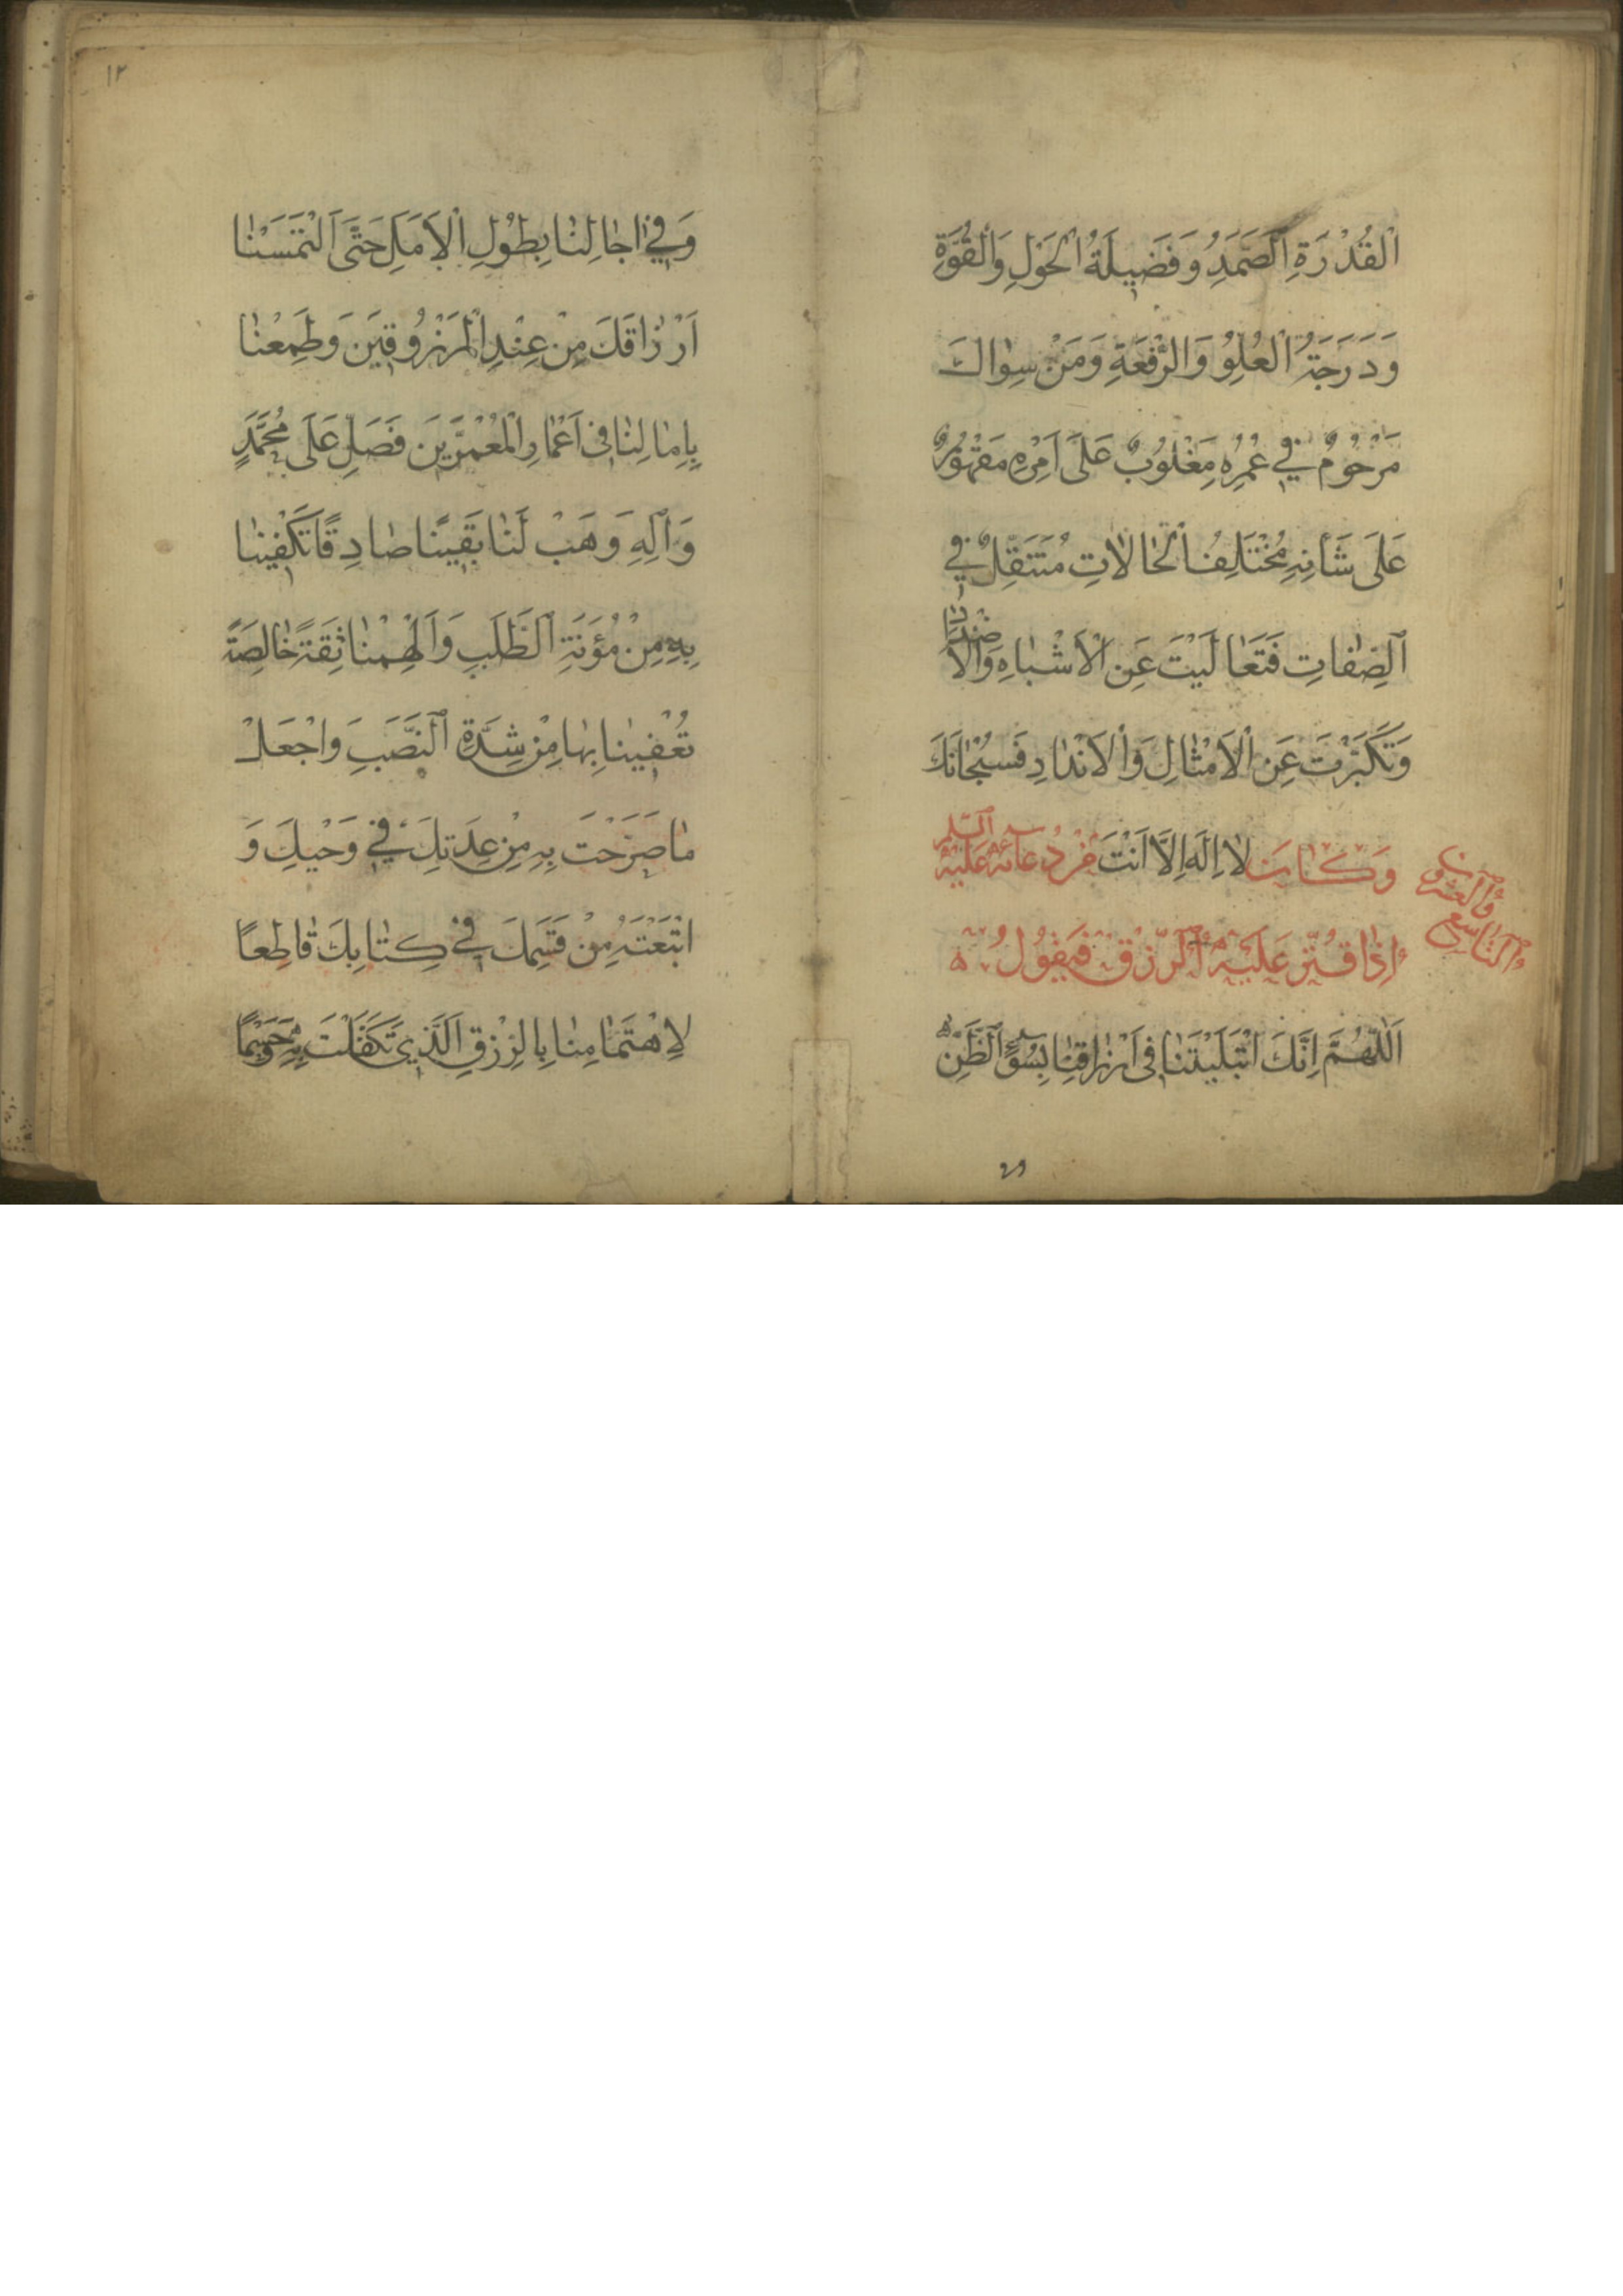 اَلْقُدْرَةِ اَلصَّمَدِ وَفَضِيلَةُ الْحَوْلِ وَالْقُوَّةِ
وَدَرَجَةُ الْعُلُوِّ وَالرِّفْعَةِ وَمَنْ سِوَاكَ
مَرْحُومٌ فِي عُمُرِهِ مَغْلُوبٌ عَلَى اَمْرِهِ مَقْهُورٌ
عَلَى شَأْنِهِ مُخْتَلِفُ الْحَالَاتِ مُتَنَقِّلٌ فِي
الصِّفَاتِ فَتَعَالَيْتَ عَنِ الْاَشْبَاهِ وَالْاَضْدَادِ
وَتَكَبَّرْتَ عَنِ الْاَمْثَالِ وَالْاَنْدَادِ فَسُبْحَانَكَ
لَا اِلَهَ اِلَّا اَنْتَ وَكَانَ مِنْ دُعَائِهِ عَلَيْهِ السَّلَمُ
اِذَا قُتِّرَ عَلَيْهِ الرِّزْقُ فَيَقُولُ
اَللّٰهُمَّ اِنَّكَ ابْتَلَيْتَنَا فِي اَرْزَاقِنَا بِسُوءِ الظَّنِّ
وَالْعِشْرُونَ
التَّاسِعُ
١٢
وَفِي اٰجَالِنَا بِطُولِ الْاَمَلِ حَتَّى الْتَمَسْنَا
اَرْزَاقَكَ مِنْ عِنْدِ الْمَرْزُوقِينَ وَطَمِعْنَا
بِاٰمَالِنَا فِي اَعْمَارِ الْمُعَمَّرِينَ فَصَلِّ عَلَى مُحَمَّدٍ
وَاٰلِهِ وَهَبْ لَنَا يَقِينًا صَادِقًا تَكْفِينَا
بِهِ مِنْ مَؤُنَةِ الطَّلَبِ وَاَلْهِمْنَا ثِقَةً خَالِصَةً
تُعْفِينَا بِهَا مِنْ شِدَّةِ النَّصَبِ وَاجْعَلْ
مَا صَرَّحْتَ بِهِ مِنْ عِدَتِكَ فِي وَحْيِكَ وَ
اتْبَعْتَهُ مِنْ قَسَمِكَ فِي كِتَابِكَ قَاطِعًا
لِاِهْتِمَامِنَا بِالرِّزْقِ الَّذِي تَكَفَّلْتَ بِهِ وَحَسْمًا